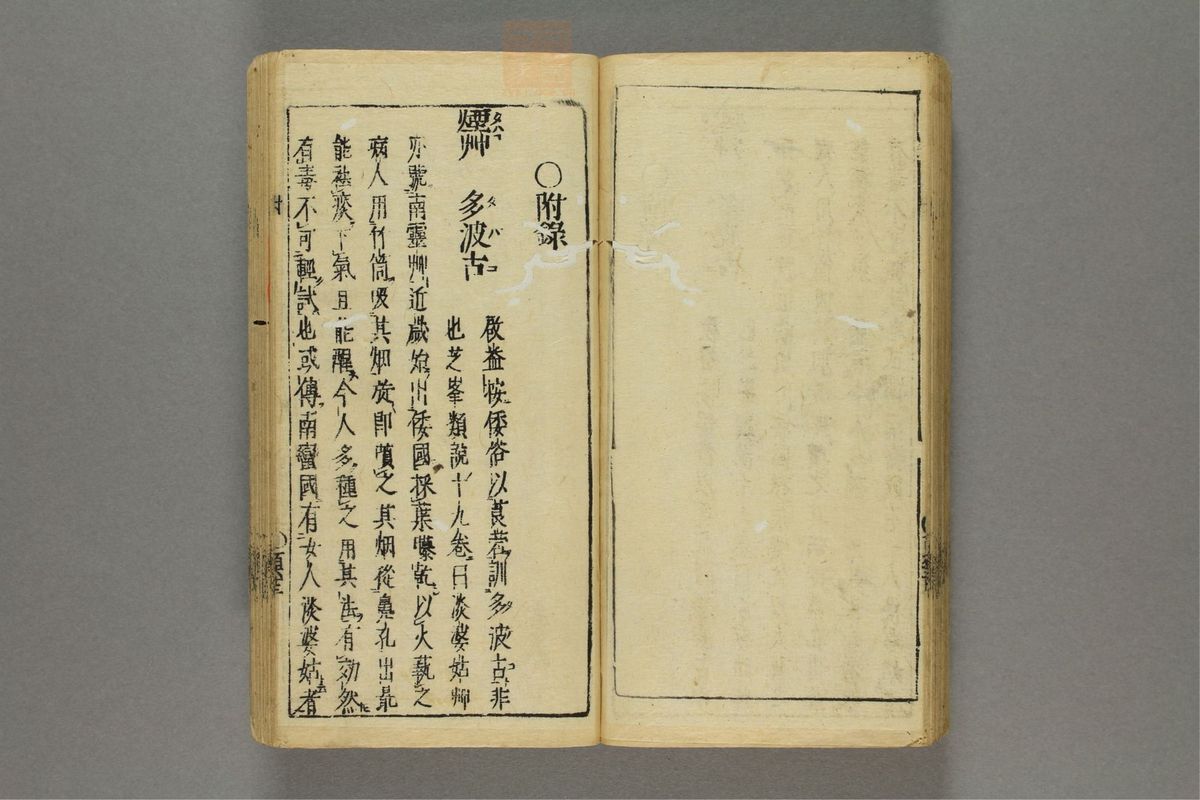 〇附錄
煙艸 多波古
啟益按倭俗以莨菪訓多波古非
也芝峯類說十九卷曰淡婆姑艸
亦號南靈艸近歲始出倭國採葉曝乾以火爇之
病人用竹筒吸其烟旋即噴之其烟從鼻孔出最
能祛痰下氣且能醒今人多種之用其法有効然
有毒不可輕試也或傳南蠻國有女人淡婆姑者